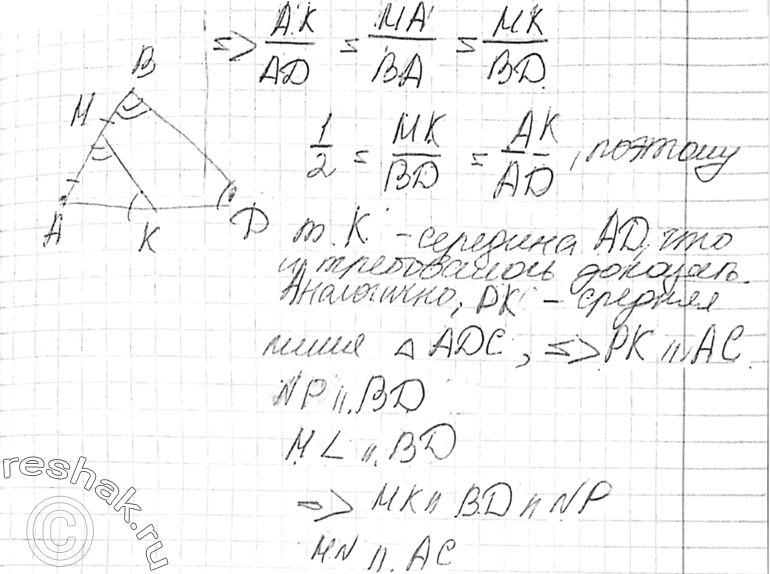 => AK/AD = MA/BA = MK/BD
B
M
A
K
D
1/2 = MK/BD = AK/AD, поэтому
т. K - середина AD, что
и требовалось доказать.
Аналогично, PK - средняя
линия △ ADC, => PK || AC
NP || BD
ML || BD
=> MK || BD || NP
MN || AC
reshak.ru
©